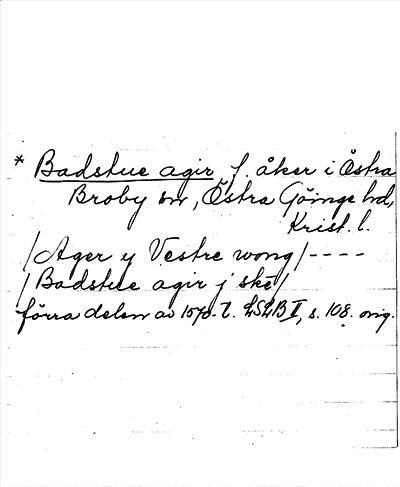 * Badstue agir, f. åker i Östra
Broby sn, Östra Göinge hd,
Krist. l.
/Ager y Vestre wong/----
/Badstue agir j ske/
förra delen av 1570-t. LSLB I, s. 108. orig.